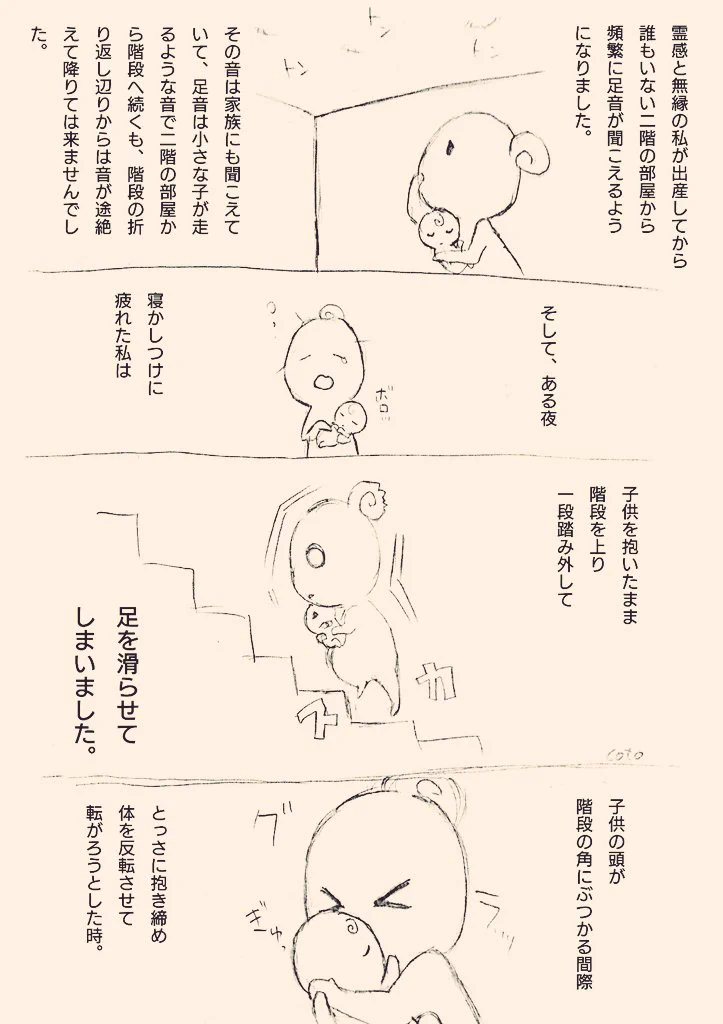 霊感と無縁の私が出産してから
誰もいない二階の部屋から
頻繁に足音が聞こえるよう
になりました。
トン
トン
トン
トン
その音は家族にも聞こえて
いて、足音は小さな子が走
るような音で二階の部屋か
ら階段へ続くも、階段の折
り返し辺りからは音が途絶
えて降りては来ませんでし
た。
そして、ある夜
ボロッ
寝かしつけに
疲れた私は
子供を抱いたまま
階段を上り
一段踏み外して
ズ
カ
足を滑らせて
しまいました。
coto
子供の頭が
階段の角にぶつかる間際
グ
ラッ
ぎゅ
とっさに抱き締め
体を反転させて
転がろうとした時。